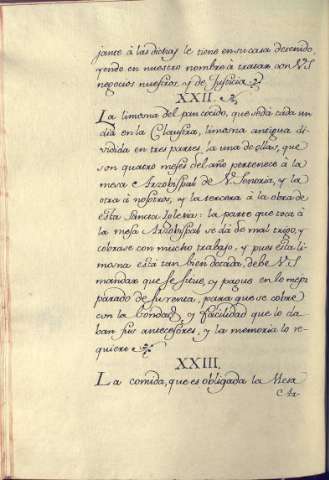 jante à las dichas le tiene en su casa detenido,
yendo en nuestro nombre à tratar con V.S
negocios nuestros, y de Justicia.
XXII.
La limosna del pan cocido, que se dà cada un
dia en la Claustra, limosna antigua di-
vidida en tres partes, la una de ellas, que
son quatro meses del año pertenece à la
mesa Arzobispal de V. Señoria, y la
otra à nosotros, y la tercera à la obra de
esta Sancta Iglesia: la parte que toca à
la mesa Arzobispal se dà de mal trigo, y
cobrase con mucho trabajo, y pues esta li-
mosna està tan bien dotada, debe V.S
mandar que se situe, y pague en lo mejor
parado de su renta, para que se cobre
con la bondad, y facilidad que lo da-
ban sus antecesores, y la memoria lo re-
quiere.
XXIII.
La comida, que es obligada la Mesa
Ar-